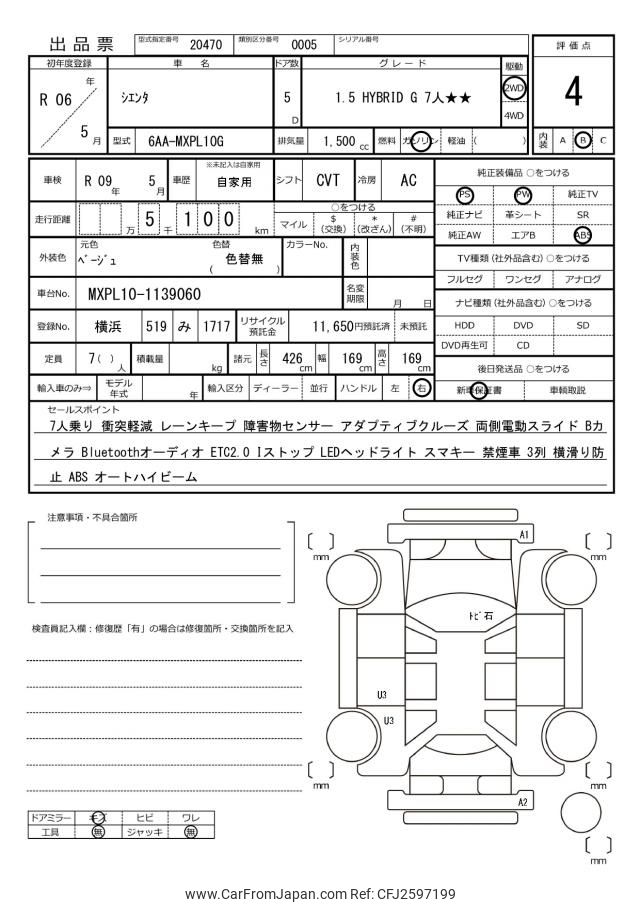 出品票 型式指定番号 20470 類別区分番号 0005 シリアル番号
評価点
初年度登録 車名 ドア数 グレード 駆動
R 06 年 シエンタ 5 D 1.5 HYBRID G 7人★★ 2WD 4
5 月 4WD
型式 6AA-MXPL10G 排気量 1,500 cc 燃料 ガソリン 軽油 ( ) 内装 A B C
車検 R 09 年 5 月 車歴 ※未記入は自家用 自家用 シフト CVT 冷房 AC 純正装備品 ○をつける
PS PW 純正TV
走行距離 万 5 千 1 0 0 km ○をつける 純正ナビ 革シート SR
マイル $ (交換) * (改ざん) # (不明) 純正AW エアB ABS
外装色 元色 ﾍﾞｰｼﾞｭ 色替 ( 色替無 ) カラーNo. 内装色 TV種類 (社外品含む) ○をつける
フルセグ ワンセグ アナログ
車台No. MXPL10-1139060 名変期限 月 日 ナビ種類 (社外品含む) ○をつける
登録No. 横浜 519 み 1717 リサイクル預託金 11,650円預託済 未預託 HDD DVD SD
DVD再生可 CD
定員 7 ( ) 人 積載量 kg 諸元 長さ 426 cm 幅 169 cm 高さ 169 cm 後日発送品 ○をつける
輸入車のみ⇒ モデル年式 年 輸入区分 ディーラー 並行 ハンドル 左 右 新車保証書 車輌取説
セールスポイント
7人乗り 衝突軽減 レーンキープ 障害物センサー アダプティブクルーズ 両側電動スライド Bカ
メラ Bluetoothオーディオ ETC2.0 Iストップ LEDヘッドライト スマキー 禁煙車 3列 横滑り防
止 ABS オートハイビーム
注意事項・不具合箇所
A1
mm mm
ﾄﾋﾞ石
検査員記入欄：修復歴「有」の場合は修復箇所・交換箇所を記入
U3
U3
mm mm
A2
ドアミラー キズ ヒビ ワレ
工具 無 ジャッキ 無
mm
www.CarFromJapan.com Ref: CFJ2597199